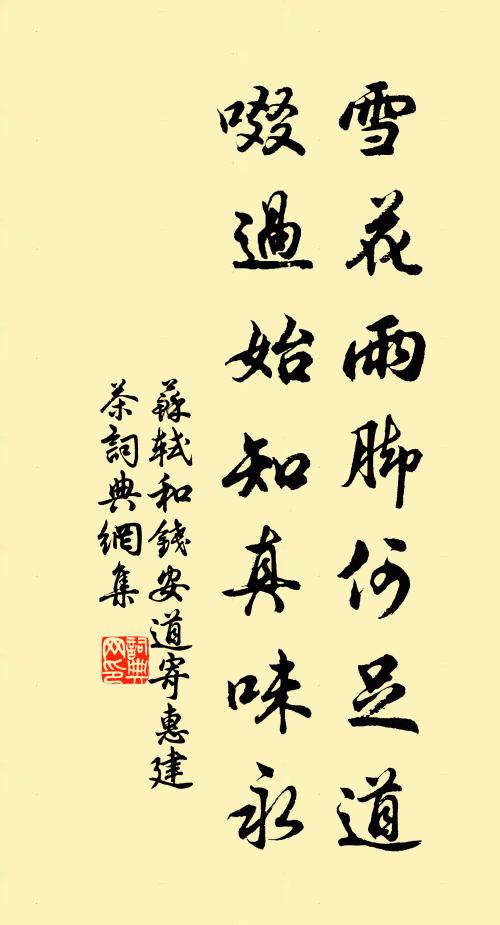 雪花雨脚何足道
啜過始知真味永
蘇軾和錢安道寄惠建
茶詞典網集
詞典
网印